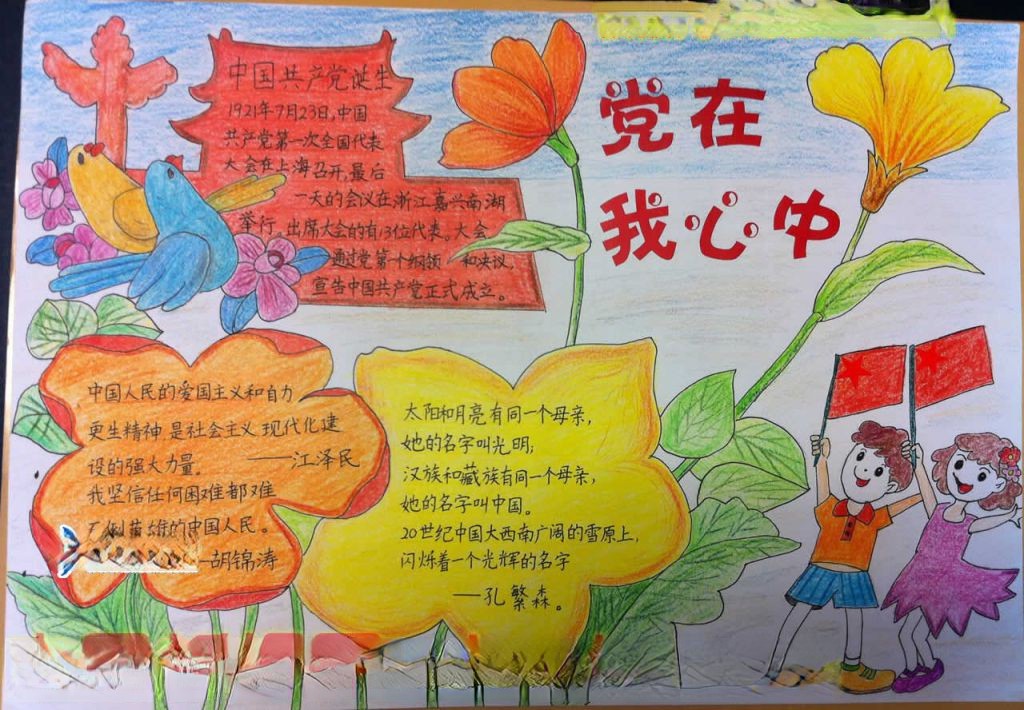 党在
我心中
中国共产党诞生
1921年7月23日,中国
共产党第一次全国代表
大会在上海召开,最后
一天的会议在浙江嘉兴南湖
举行,出席大会的有13位代表。大会
通过党第一个纲领和决议,
宣告中国共产党正式成立。
中国人民的爱国主义和自力
更生精神,是社会主义现代化建
设的强大力量。——江泽民
我坚信任何困难都难
不倒英雄的中国人民。
—胡锦涛
太阳和月亮有同一个母亲,
她的名字叫光明;
汉族和藏族有同一个母亲,
她的名字叫中国。
20世纪中国大西南广阔的雪原上,
闪烁着一个光辉的名字
——孔繁森。